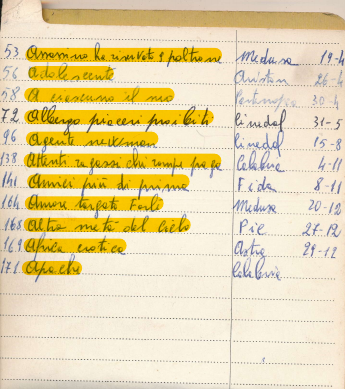 53 Assassino ha riservato 9 poltrone Medusa 19-4
56 Adolescente Ariston 26-4
58 A ciascuno il suo Partenopea 30-4
72 Albergo piaceri proibiti Cinedal 31-5
96 Agente newman Cinedal 15-8
138 Attenti ragazzi chi rompe paga Calabria 4-11
141 Amici più di prima Fida 8-11
164 Amore targato Forlì Medusa 20-12
165 Altra metà del cielo Pic 27-12
169 Africa erotica Astra 29-12
171 Apache Calabria